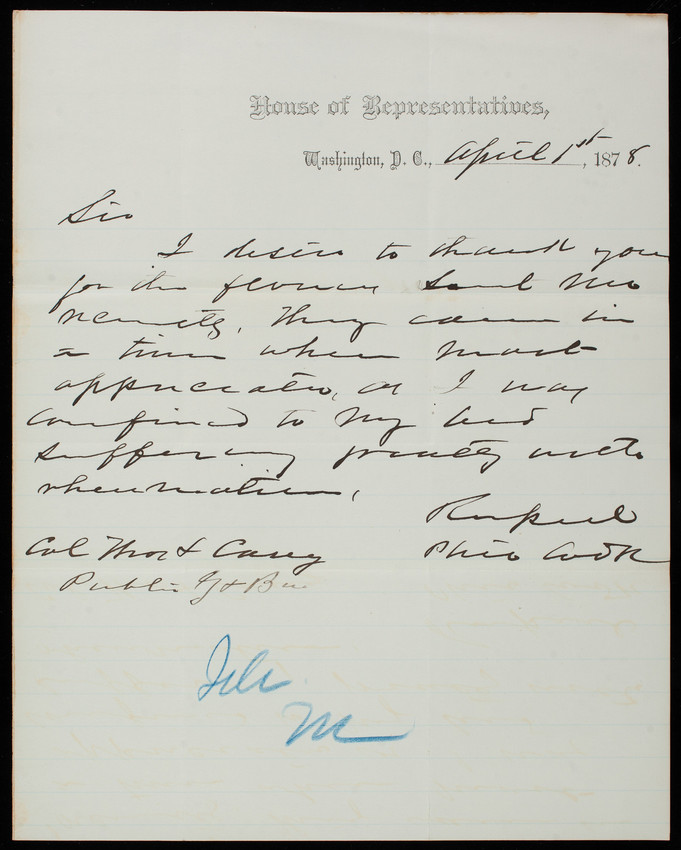 House of Representatives,
Washington, D. C., April 1st, 1878.
Sir
I desire to thank you
for the flowers sent me
recently. They came in
a time when most
appreciated, as I was
confined to my bed
suffering greatly with
rheumatism.
Respect
Phil Cook
Col Thos L Casey
Public G & B
File
M